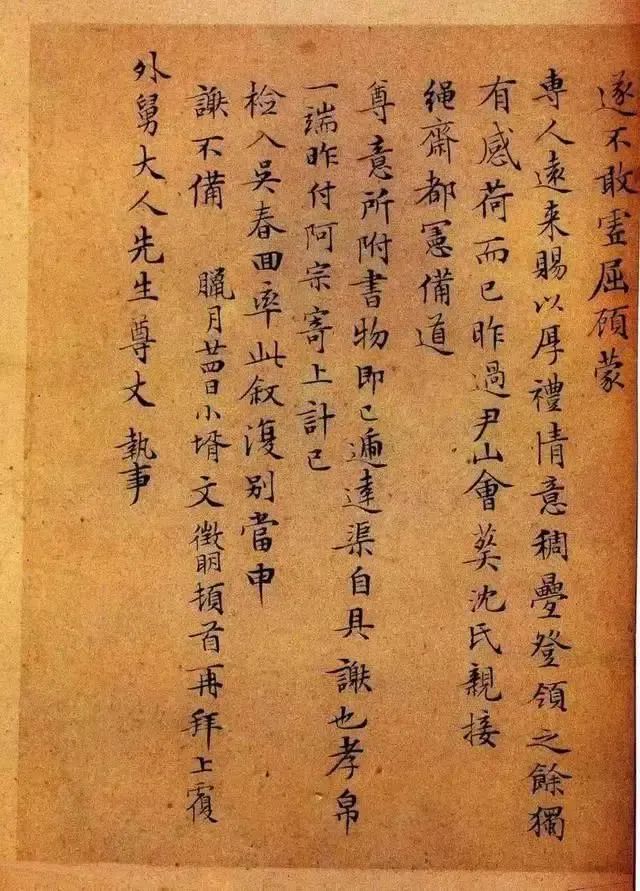 遂不敢虚屈顾蒙
専人遠来賜以厚禮情意稠疊登領之餘獨
有感荷而已昨過尹山會葬沈氏親接
繩齋都憲備道
尊意所附書物即已逓達渠自具謝也孝帛
一端昨付阿宗寄上計已
檢入吳春回率此敘復别當申
謝不備 臘月廿四日小壻文徵明頓首再拜上覆
外舅大人先生尊丈 執事